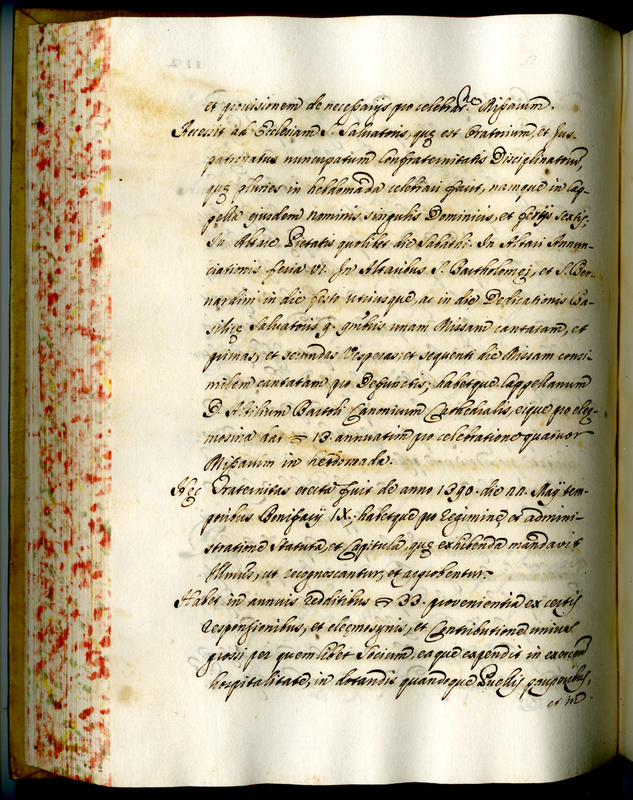 et provisionem de necessarijs pro celebrat.ne Missarum.
Accessit ad Ecclesiam S. Salvatoris, quę est Oratorium, et Jus-
patronatus nuncupatum Confraternitatis Disciplinatorum,
quę pluries in hebdomada celebrari facit, namque in Cap-
pella ejusdem nominis singulis Dominicis, et ferijs sextis,
In Altare Pietatis quolibet die Sabathi. In Altari Annun-
ciationis feria VI. In Altaribus S. Bartholomęi, et S. Ber-
nardini in die festo utriusque, ac in die Dedicationis Ba-
silicę Salvatoris unam Missam cantatam, et
primas, et secundas Vesperas: et sequenti die Missam consi-
milem cantatam pro Defunctis; habetque Cappellanum
D. Attilium Bartoli Canonicum Cathedralis, eique pro elee-
mosina dat 13. annuatim pro celebratione quatuor
Missarum in hebdomada.
Hęc Fraternitas erecta fuit de anno 1390. die 22. Maij tem-
poribus Bonifacij IX; habetque pro regimine, et admini-
stratione Statuta, et Capitula, quę exhibenda mandavit
Illmus, ut recognoscantur, et approbentur.
Habet in annuis redditibus 33. provenientia ex certis
responsionibus, et eleemosynis, et Contributione unius
grossi per quemlibet Socium, eaque expendit in exercen.
hospitalitate, in dotandis quandoque Puellis pauperibus,
et in